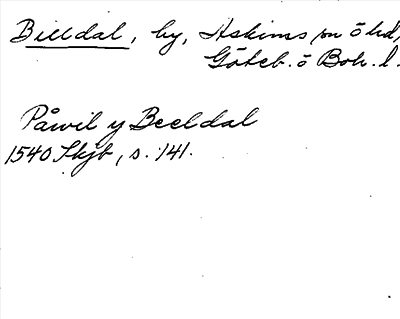 Billdal, by, Askims sn o hd,
Göteb. o Boh. l.
Påwil y Beeldal
1540 Skjb, s. 141.